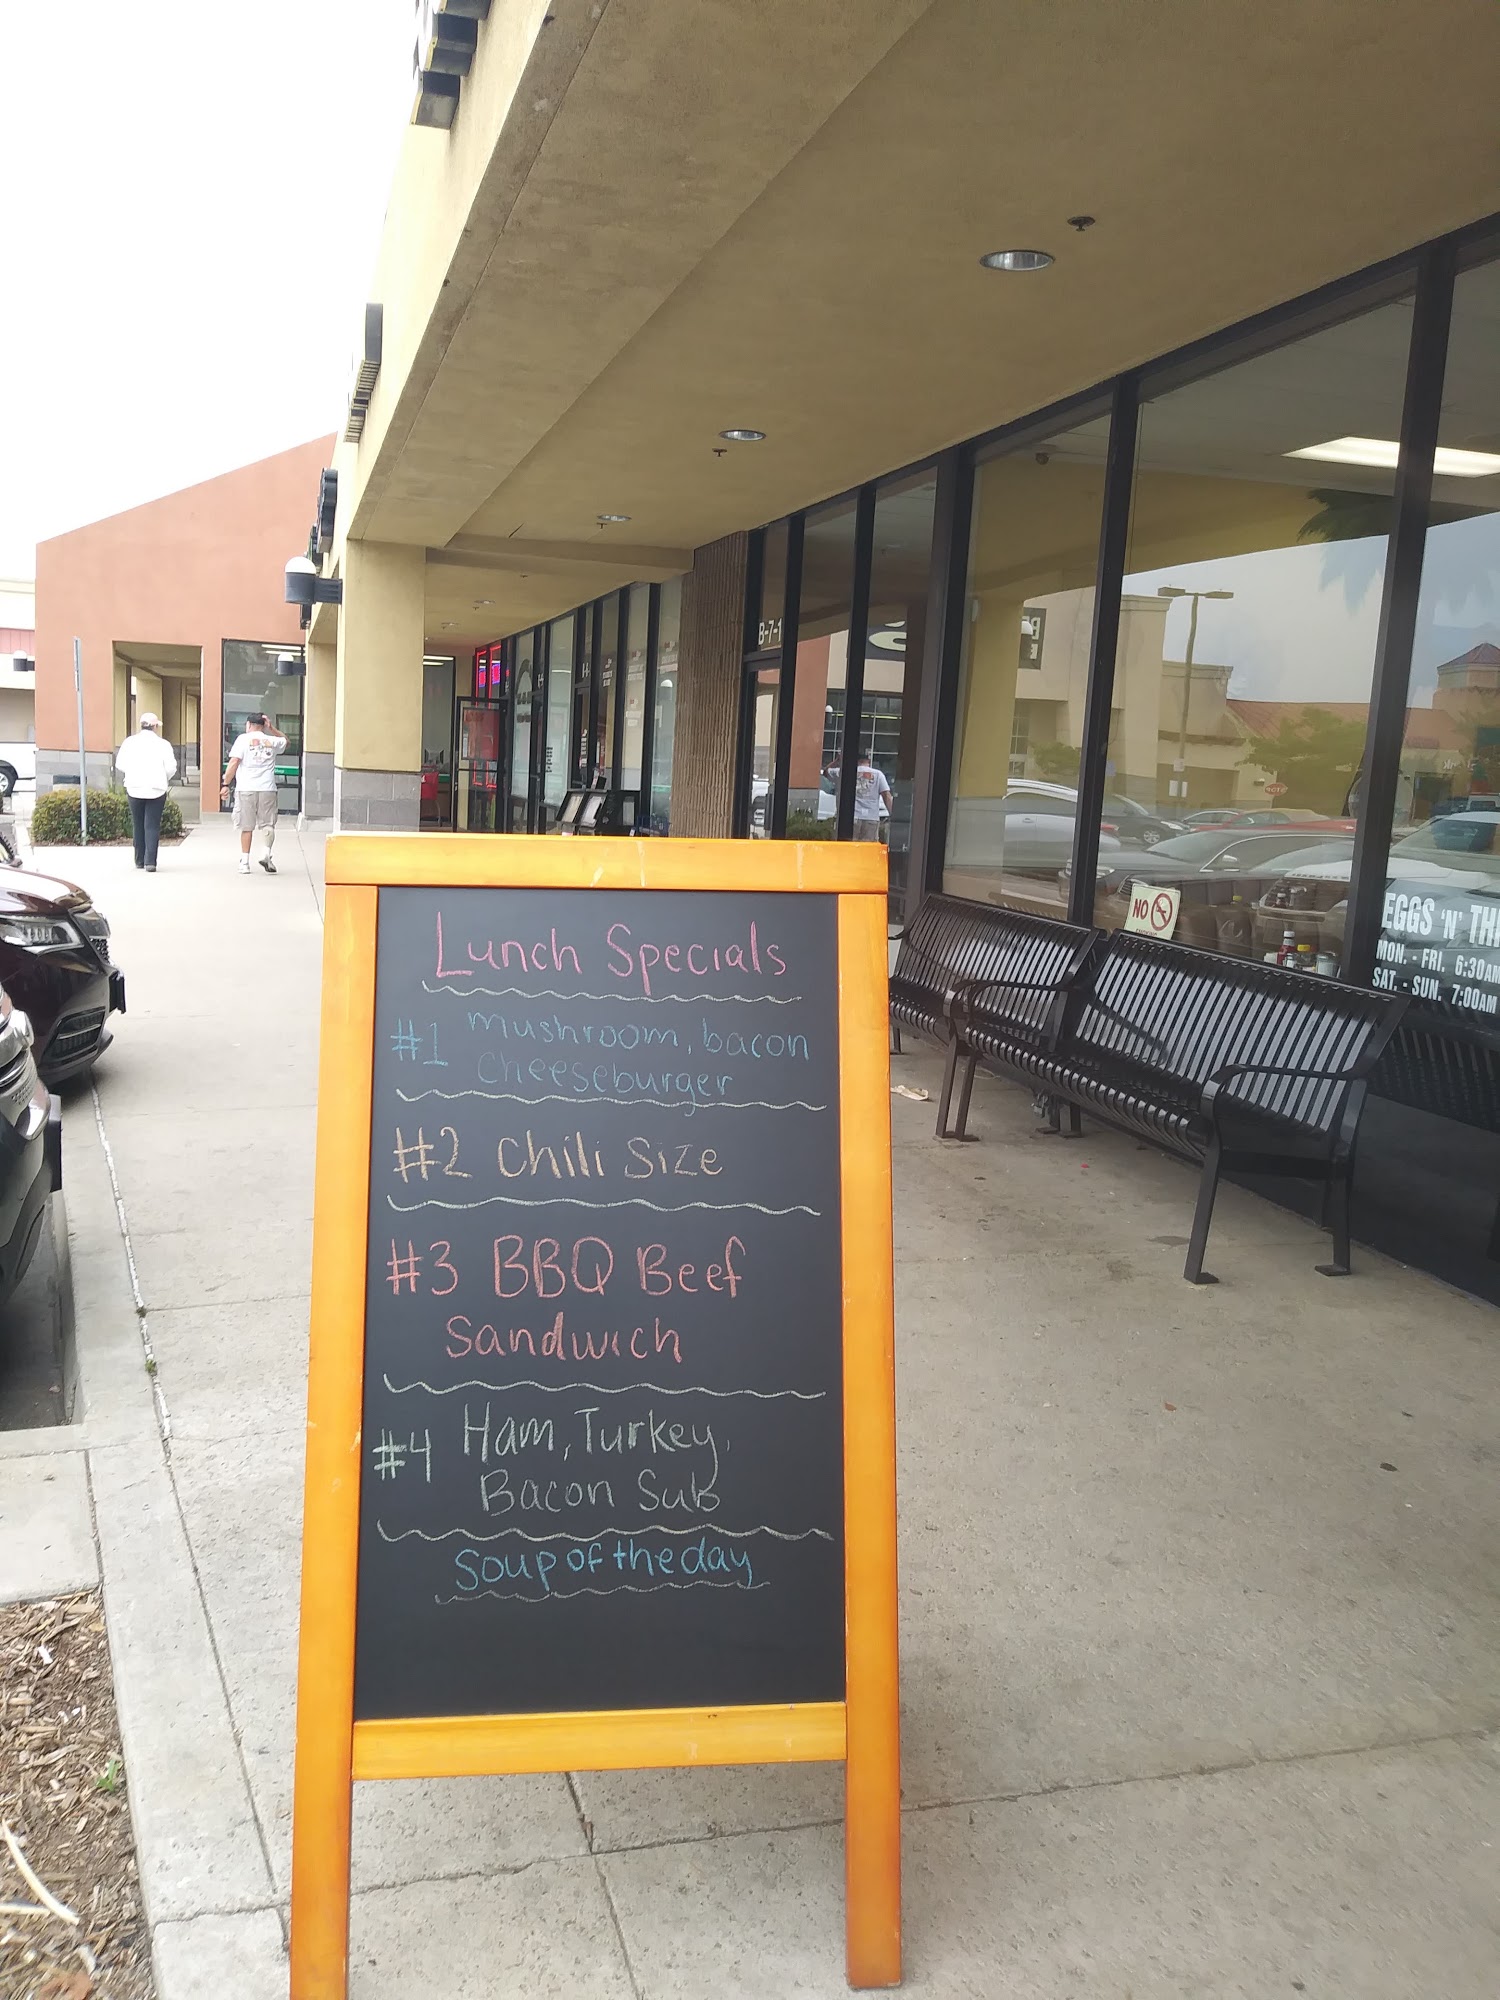 Lunch Specials
#1 mushroom, bacon
cheeseburger
#2 Chili Size
#3 BBQ Beef
Sandwich
#4 Ham, Turkey,
Bacon Sub
Soup of the day
B-7-1
NO
EGGS 'N' TH
MON. - FRI. 6:30AM
SAT. - SUN. 7:00AM